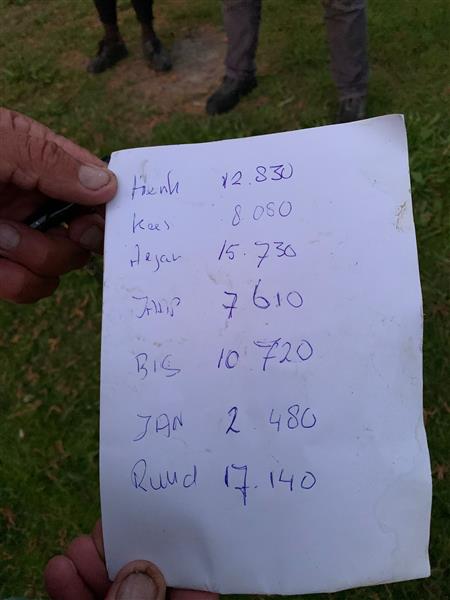 Henk 12.830
Kees 8.080
Arjan 15.730
7610
BIS 10 720
JAN 2 480
Ruud 17.140